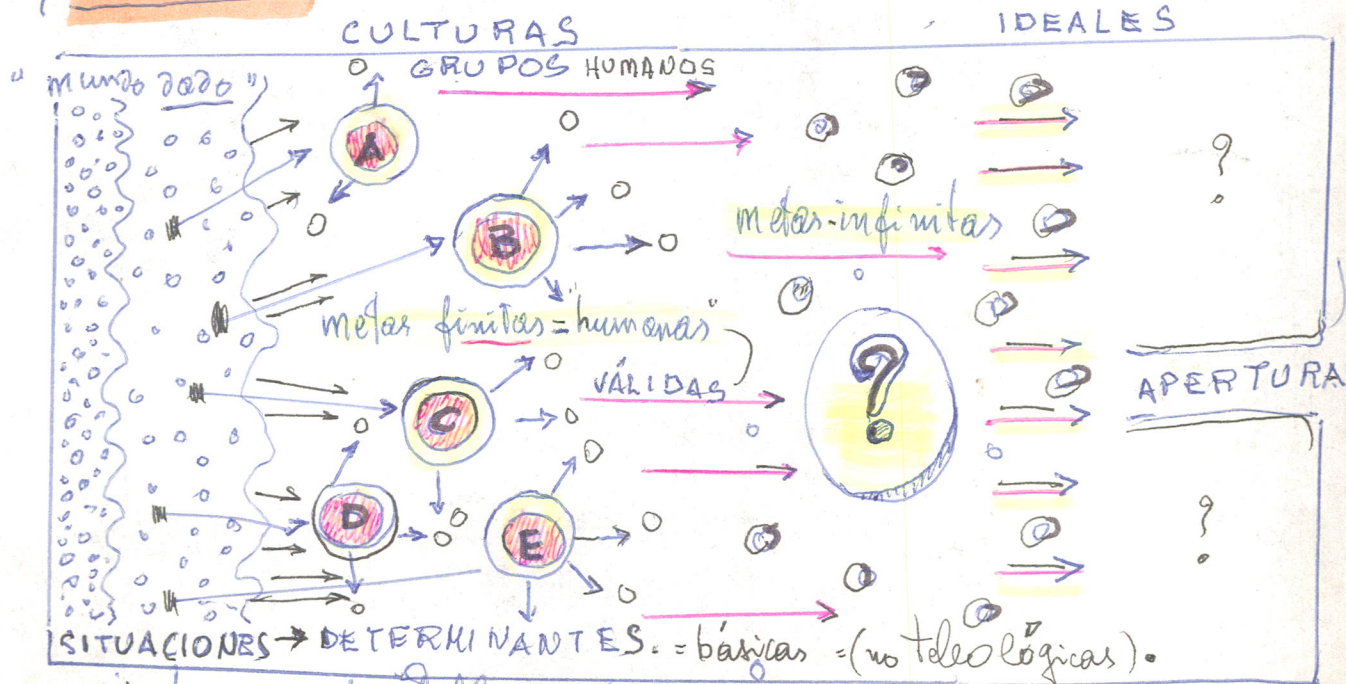 CULTURAS
IDEALES
"mundo dado"
GRUPOS HUMANOS
A
?
B
metas-infinitas
metas finitas = "humanas"
?
C
VÁLIDAS
APERTURA
D
E
?
SITUACIONES → DETERMINANTES. = básicas = (no teleológicas).